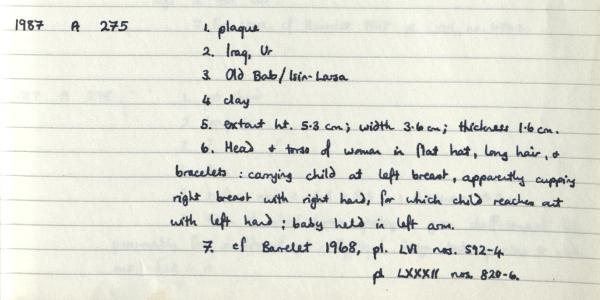 1987 A 275 1. plaque
2. Iraq, Ur
3. Old Bab/Isin-Larsa
4 clay
5. extant ht. 5.3 cm; width 3.6 cm; thickness 1.6 cm.
6. Head + torso of woman in flat hat, long hair, +
bracelets: carrying child at left breast, apparently cupping
right breast with right hand, for which child reaches out
with left hand; baby held in left arm.
7. cf Barrelet 1968, pl. LVI nos. 592-4.
pl LXXXII nos. 820-6.